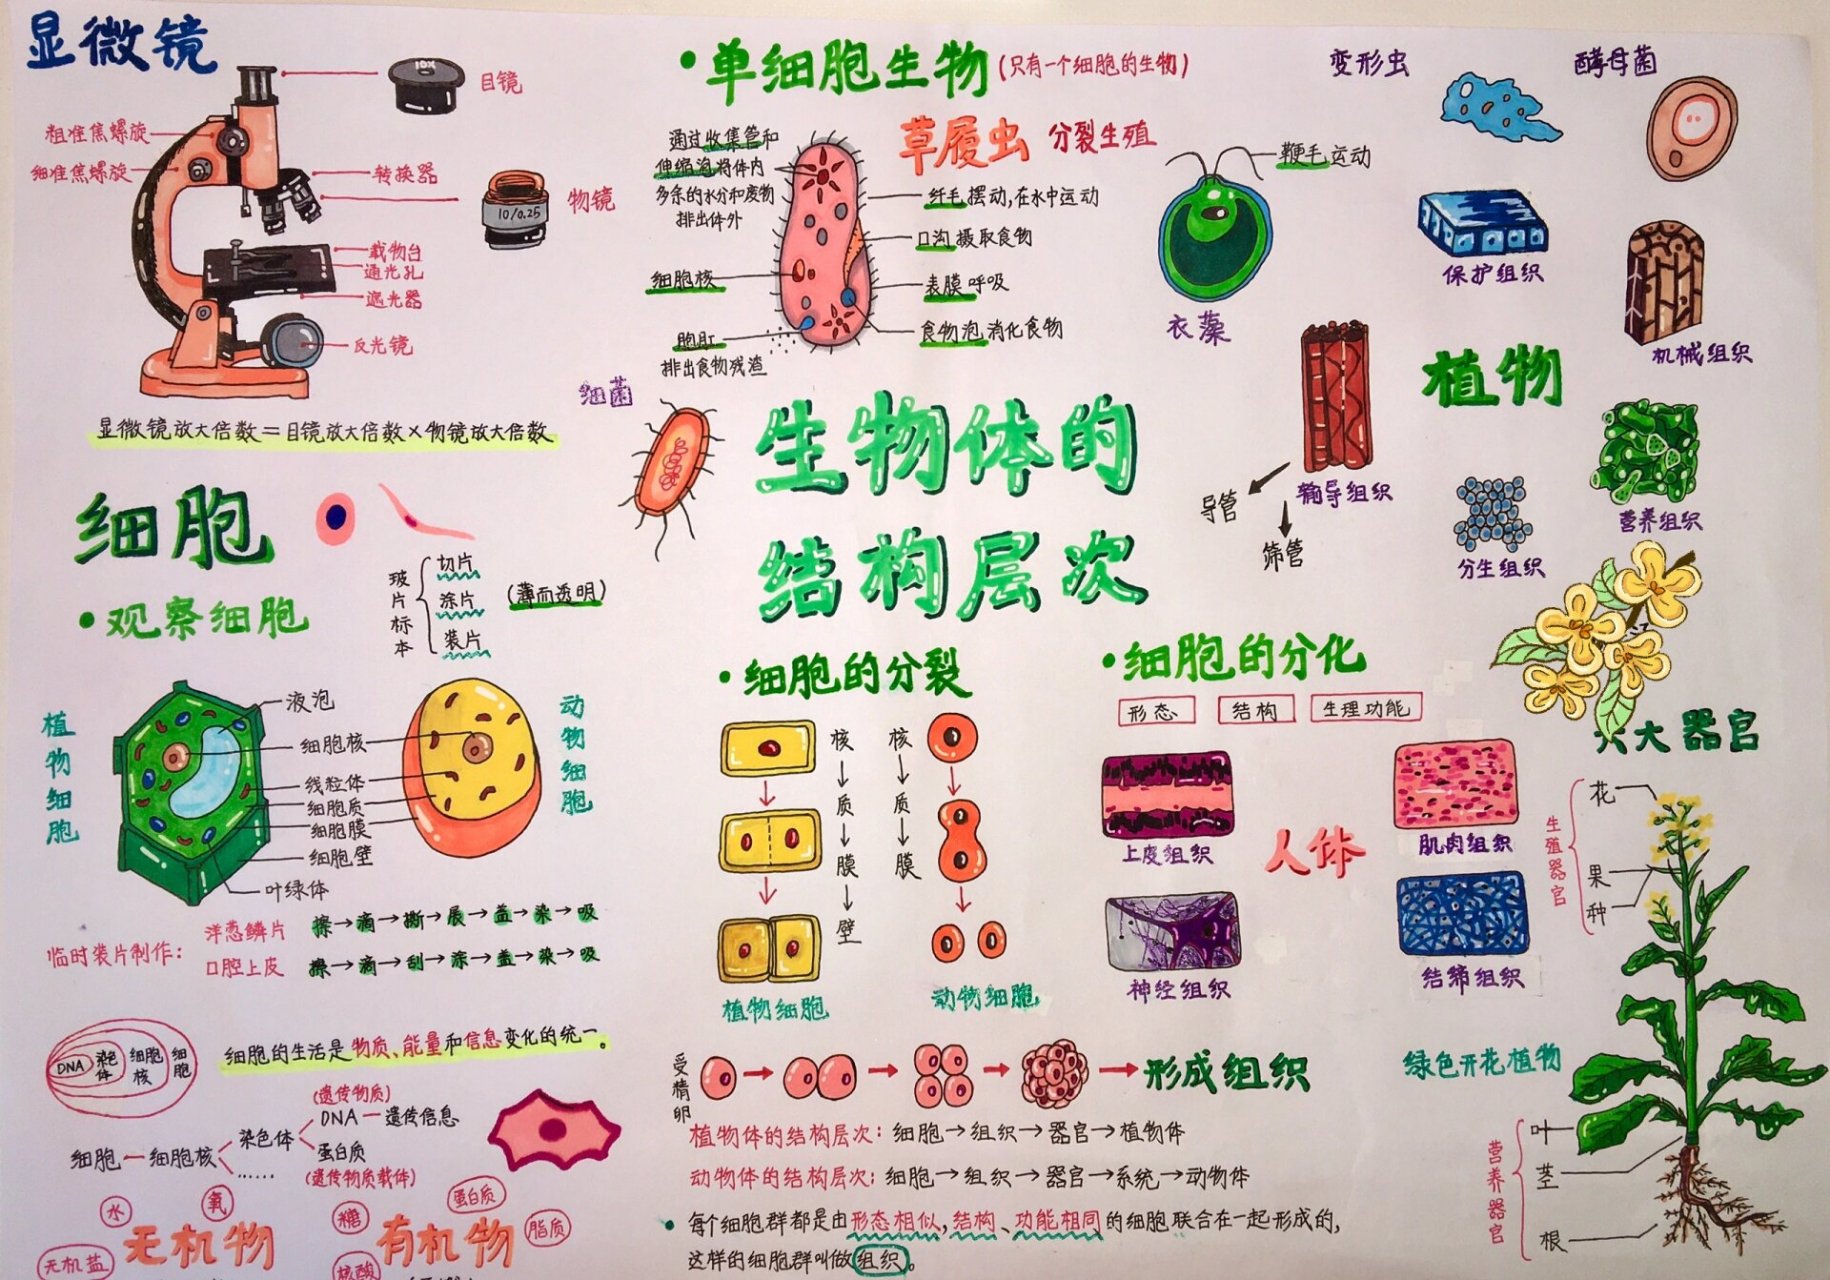 显微镜
目镜
粗准焦螺旋
细准焦螺旋
转换器
物镜
10X
10/0.25
载物台
通光孔
遮光器
反光镜
显微镜放大倍数=目镜放大倍数×物镜放大倍数
•单细胞生物(只有一个细胞的生物)
草履虫 分裂生殖
通过收集管和
伸缩泡将体内
多余的水分和废物
排出体外
细胞核
胞肛
排出食物残渣
纤毛摆动,在水中运动
口沟摄取食物
表膜呼吸
食物泡消化食物
鞭毛运动
衣藻
变形虫
酵母菌
细菌
生物体的
结构层次
植物
保护组织
机械组织
输导组织
导管
筛管
营养组织
分生组织
细胞
•观察细胞
玻片标本
切片
涂片
装片
(薄而透明)
植物细胞
动物细胞
液泡
细胞核
线粒体
细胞质
细胞膜
细胞壁
叶绿体
临时装片制作:
洋葱鳞片 擦→滴→撕→展→盖→染→吸
口腔上皮 擦→滴→刮→涂→盖→染→吸
DNA 染色体 细胞核 细胞
细胞的生活是物质、能量和信息变化的统一。
(遗传物质)
DNA—遗传信息
细胞—细胞核 染色体
蛋白质
……
(遗传物质载体)
水
氧
无机盐
无机物
糖
蛋白质
脂质
核酸
有机物
•细胞的分裂
核→质→膜→壁
核→质→膜
植物细胞
动物细胞
•细胞的分化
形态 结构 生理功能
上皮组织
肌肉组织
人体
神经组织
结缔组织
受精卵
形成组织
植物体的结构层次:细胞→组织→器官→植物体
动物体的结构层次:细胞→组织→器官→系统→动物体
•每个细胞群都是由形态相似,结构、功能相同的细胞联合在一起形成的,
这样的细胞群叫做组织。
六大器官
生殖器官
花
果
种
绿色开花植物
营养器官
叶
茎
根